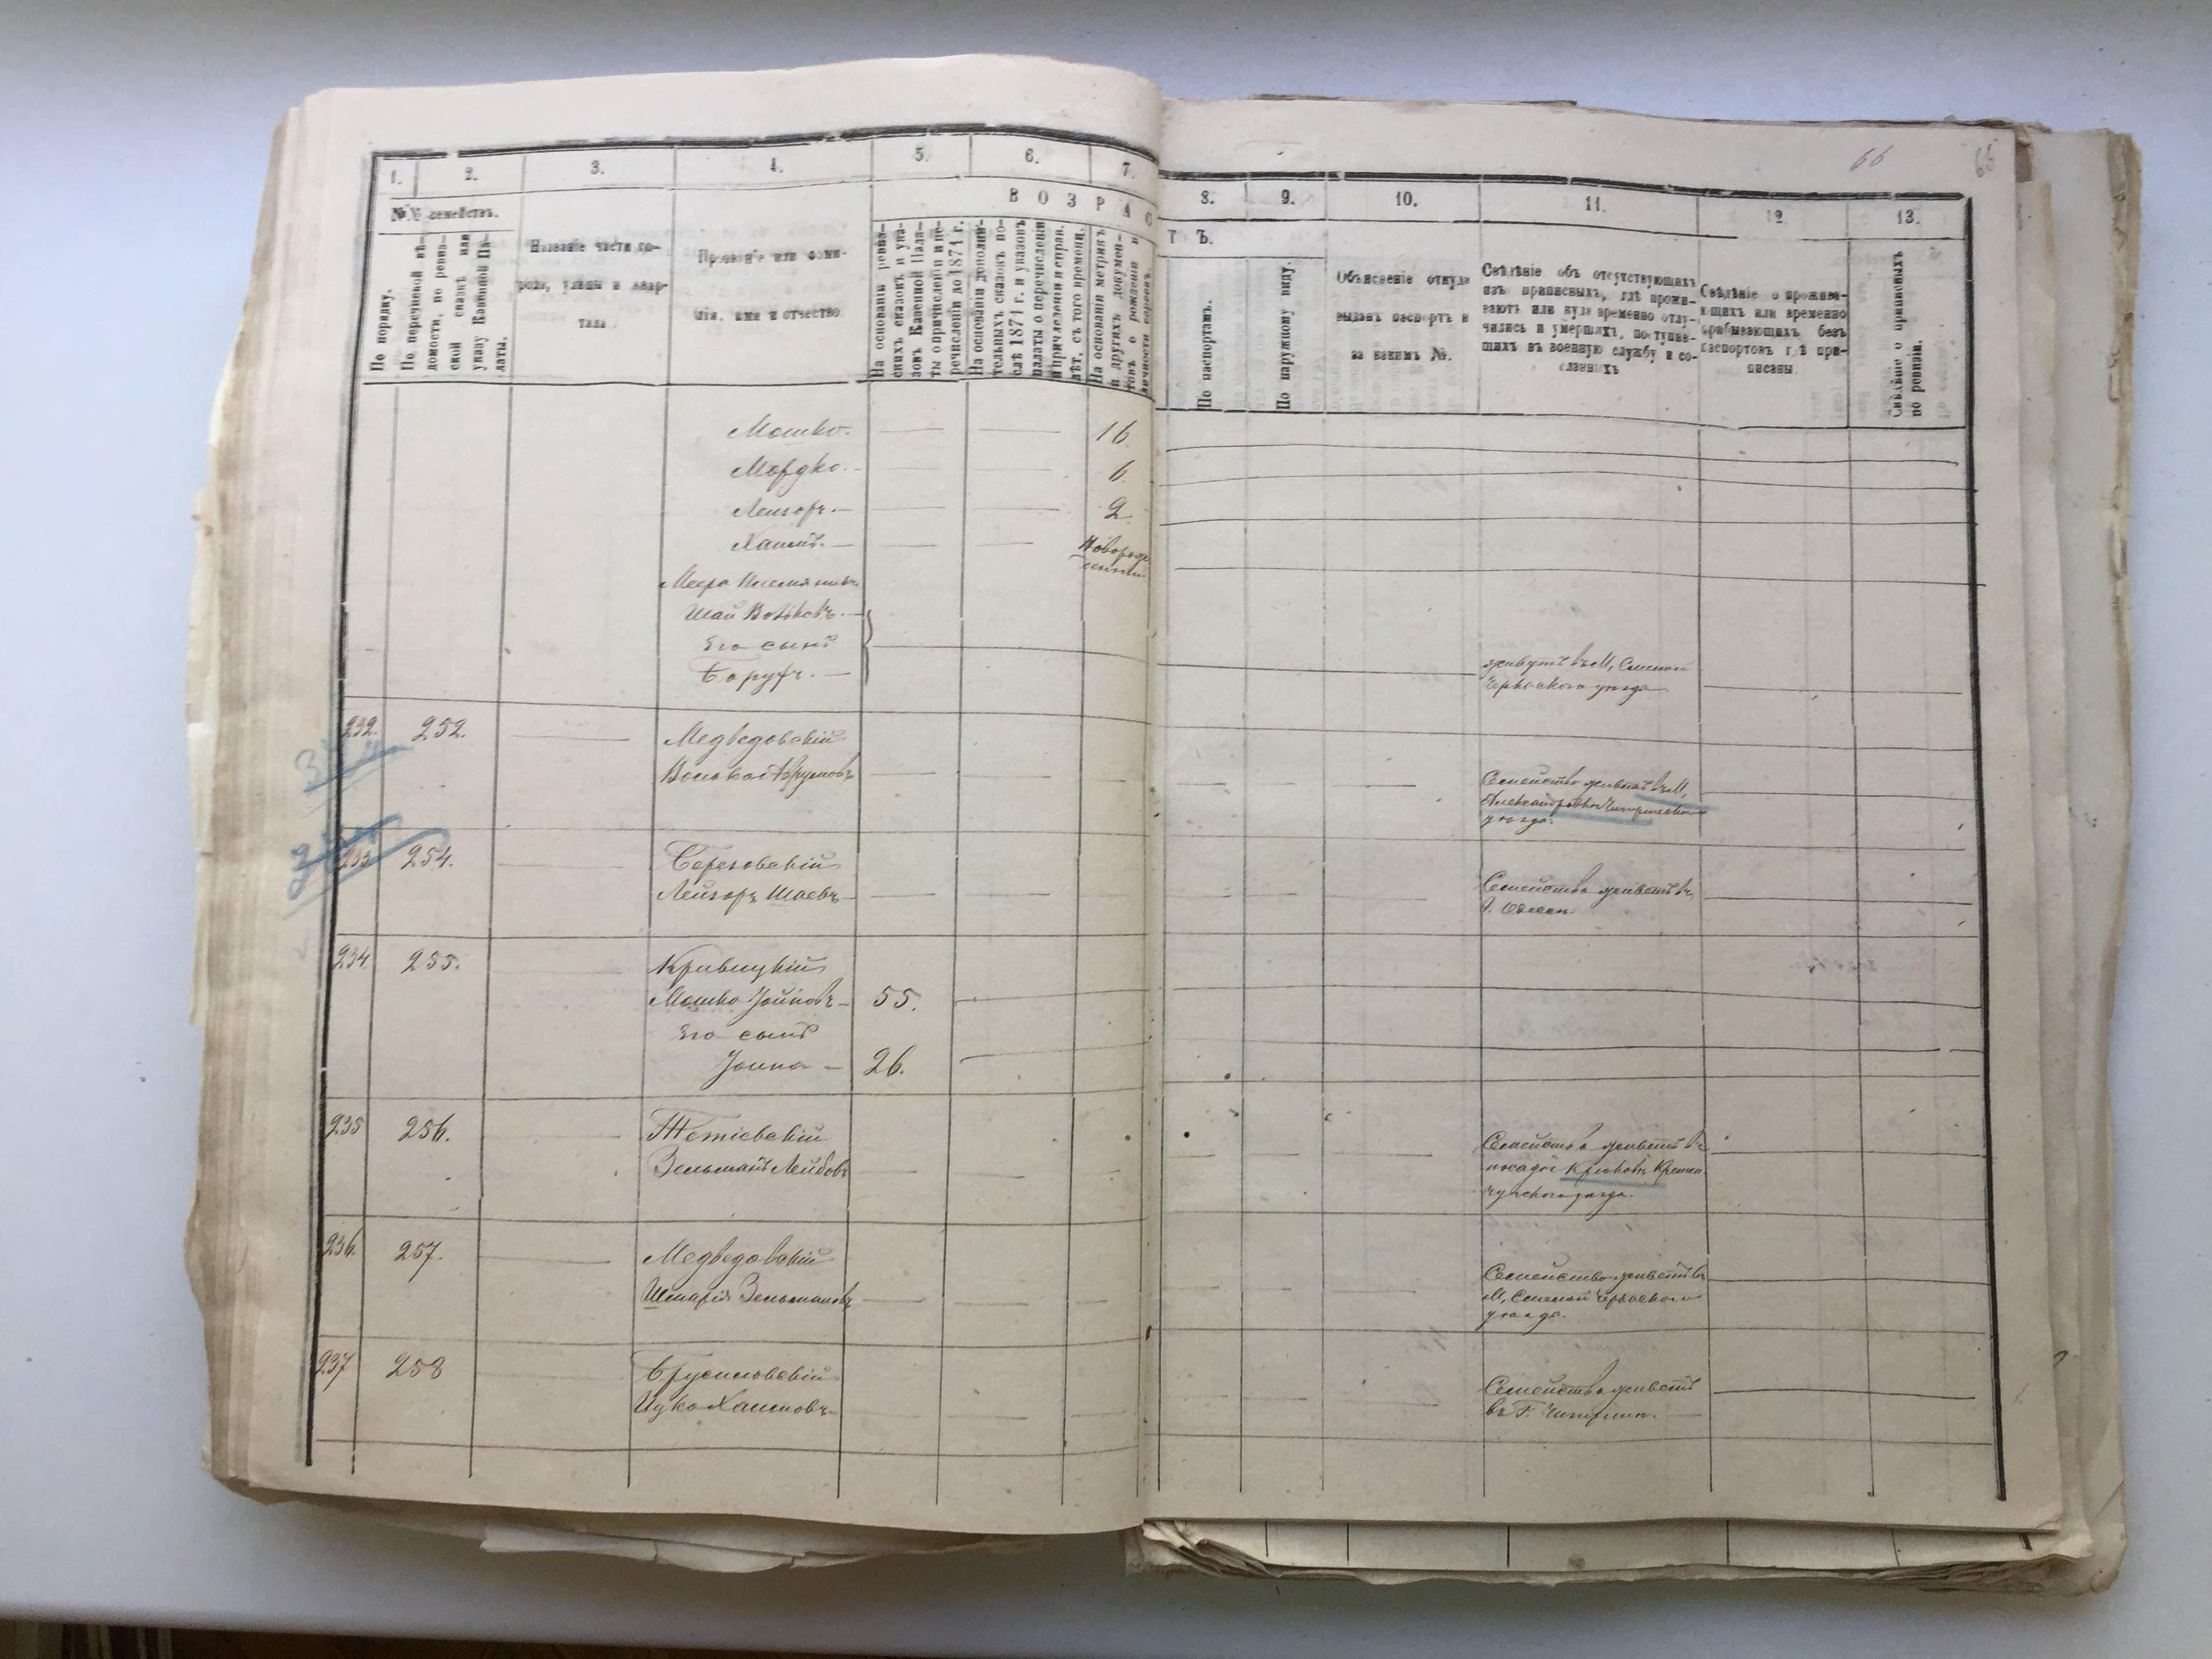 66 66
1. 2. 3. 4. 5. 6. 7.
8. 9. 10. 11. 12. 13.
№№ семействъ.
ВОЗРАС
ТЪ.
По порядку.
По перечневой вѣ-
домости, по ревиз-
ской сказкѣ или
указу Казенной Па-
латы.
Названіе части го-
рода, улицы и квар-
тала.
Прозваніе или фами-
лія, имя и отчество
На основаніи ревиз-
скихъ сказокъ и ука-
зовъ Казенной Пала-
ты о причисленіи и пе-
речисленіи до 1871 г.
На основаніи дополни-
тельныхъ сказокъ по-
слѣ 1871 г. и указовъ
палаты о перечисленіи
и причисленіи и справ.
лѣт. съ того времени.
На основаніи метрикъ
и другихъ докумен-
товъ о рожденіи и
личности евреевъ.
По паспортамъ.
По наружному виду.
Объясненіе откуда
выданъ паспортъ и
за какимъ №.
Свѣдѣніе объ отсутствующихъ
изъ приписныхъ, гдѣ прожи-
ваютъ или куда временно отлу-
чились и умершихъ, поступив-
шихъ въ военную службу и со-
сланныхъ
Свѣдѣніе о прожива-
ющихъ или временно
прибывающихъ безъ
паспортовъ гдѣ при-
писаны
Свѣдѣніе о приписныхъ
по ревизіи.
Мошко. 16.
Мордко. 6.
Лейзоръ. 2.
Хаимъ. Новорож
денный
Шая Волковъ.
Его сынъ
Борухъ.
живутъ въ М, Смѣлой
Черкаскаго уѣзда
232. 252. Медведовскій
Волько Аврумовъ
Семейство живетъ въ М,
Александровкѣ Чигиринскаго
уѣзда.
233 254. Березовскій
Лейзоръ Шаевъ
Семейство живетъ въ
Г. Одессѣ.
234. 255. Кривицкій
Мошко Іойновъ 55.
Его сынъ
Іойна 26.
235 256. Тетіевскій
Зельманъ Лейбовъ
Семейство живетъ въ
посадѣ Крюковѣ Кремен
чугскаго уѣзда.
236. 257. Медведовскій
Шмарія Зельмановъ
Семейство живетъ въ
М, Смѣлой Черкаскаго
уѣзда.
237 258 Брусиловскій
Ицко Хаимовъ
Семейство живетъ
въ Г. Чигиринѣ.